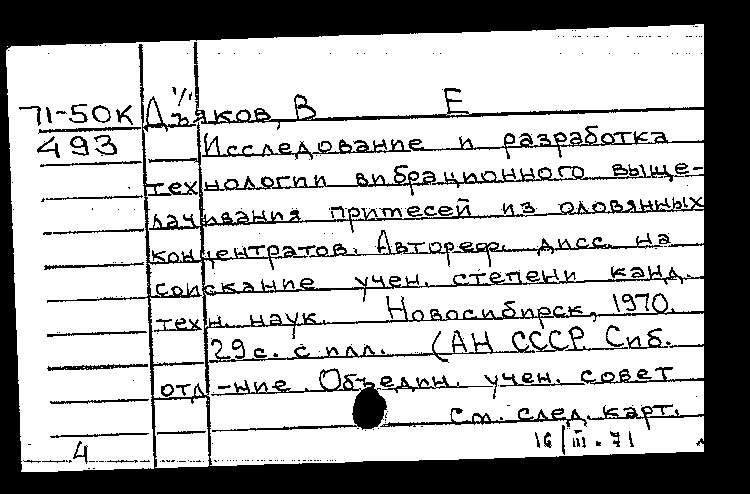 71-50к Дьяков, В Е
493 Исследование и разработка
технологии вибрационного выще-
лачивания примесей из оловянных
концентратов. Автореф. дисс. на
соискание учен. степени канд.
техн. наук. Новосибирск, 1970.
29 с. с илл. (АН СССР. Сиб.
отд-ние. Объедин. учен. совет
см. след. карт.
4 16/III.71